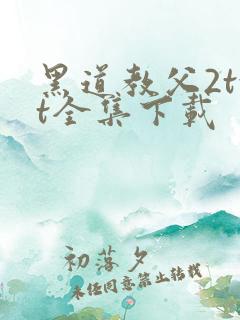 黑道教父2tx
t全集下载
初落夕
未经同意禁止转载